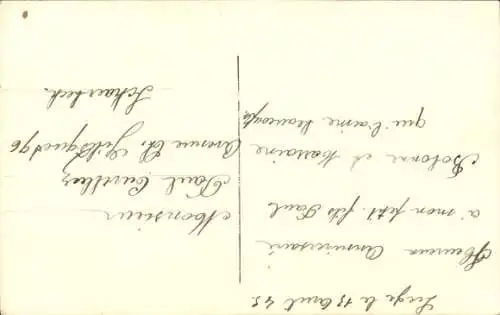 Liège le 13 Août 45
Heureux Anniversaire
à mon petit fils Paul
Bobonne et Marraine
qui l'aime beaucoup
Monsieur
Paul
Avenue Ch. Gilisquet 96
Schaerbeek.